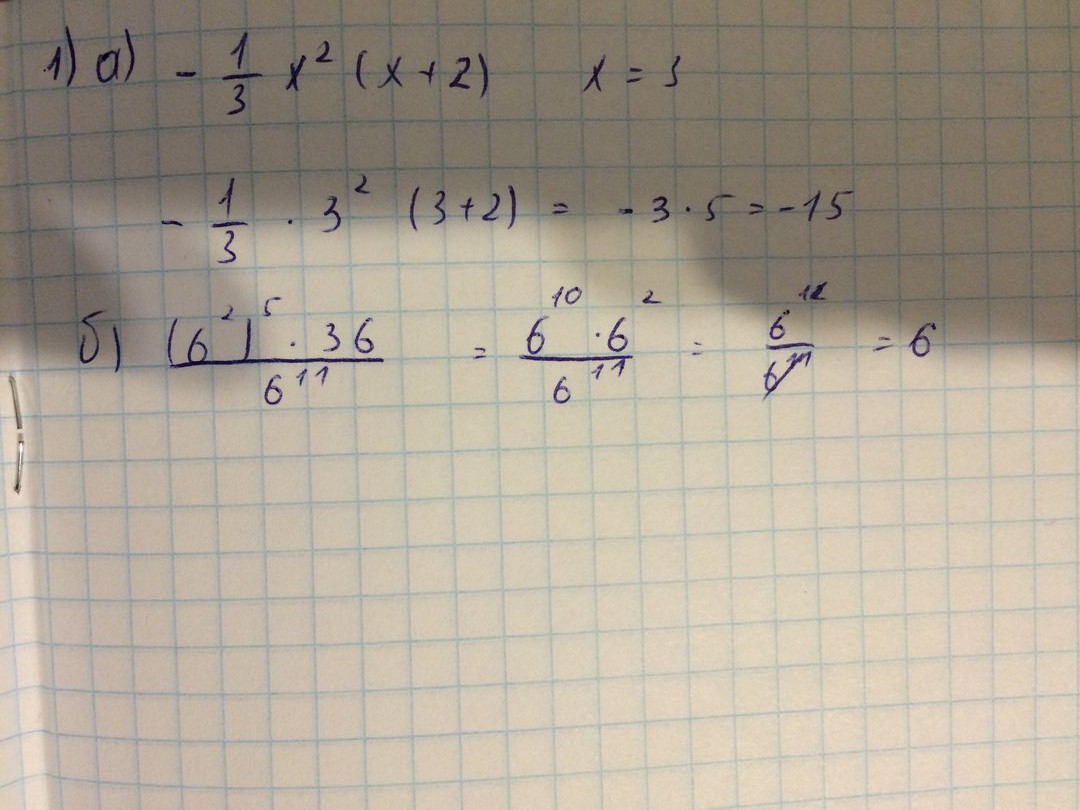 1) а) - 1/3 x² (x + 2) x = 3
- 1/3 · 3² (3+2) = - 3 · 5 = -15
б) (6²)⁵ · 36 / 6¹¹ = 6¹⁰ · 6² / 6¹¹ = 6¹² / 6¹¹ = 6